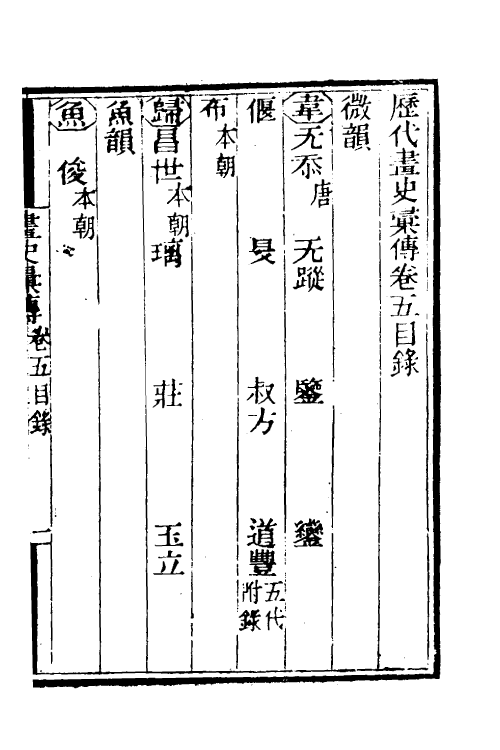 歷代畫史彙傳卷五目錄
微韻
韋无忝唐 无蹤 鑒 鑾
偃 旻 叔方 道豐五代附錄
布本朝
歸昌世本朝 瑀 莊 玉立
魚韻
魚俊本朝
畫史彙傳卷五目錄 一